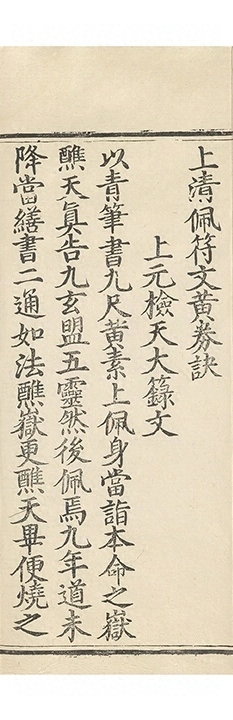 上清佩符文黃券訣
上元檢天大籙文
以青筆書九尺黃素上佩身當詣本命之嶽
醮天眞告九玄盟五靈然後佩焉九年道未
降當繕書二通如法醮嶽更醮天畢便燒之